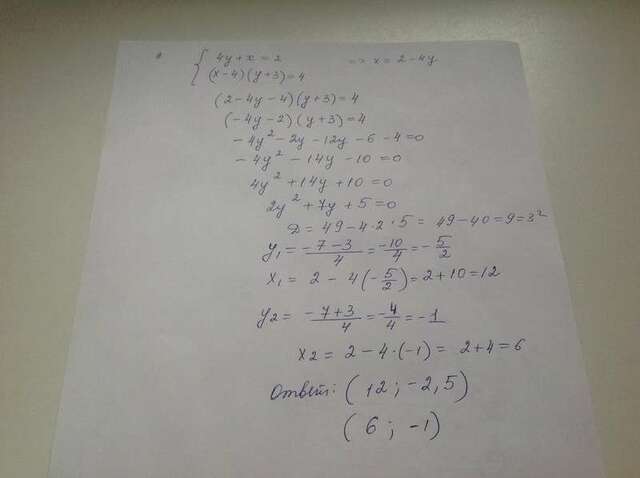 4y + x = 2 => x = 2 - 4y
(x-4)(y+3) = 4
(2-4y-4)(y+3) = 4
(-4y-2)(y+3) = 4
-4y² - 2y - 12y - 6 - 4 = 0
-4y² - 14y - 10 = 0
4y² + 14y + 10 = 0
2y² + 7y + 5 = 0
D = 49 - 4·2·5 = 49 - 40 = 9 = 3²
y₁ = (-7-3)/4 = -10/4 = -5/2
x₁ = 2 - 4(-5/2) = 2 + 10 = 12
y₂ = (-7+3)/4 = -4/4 = -1
x₂ = 2 - 4·(-1) = 2 + 4 = 6
Ответ: (12; -2,5)
(6; -1)